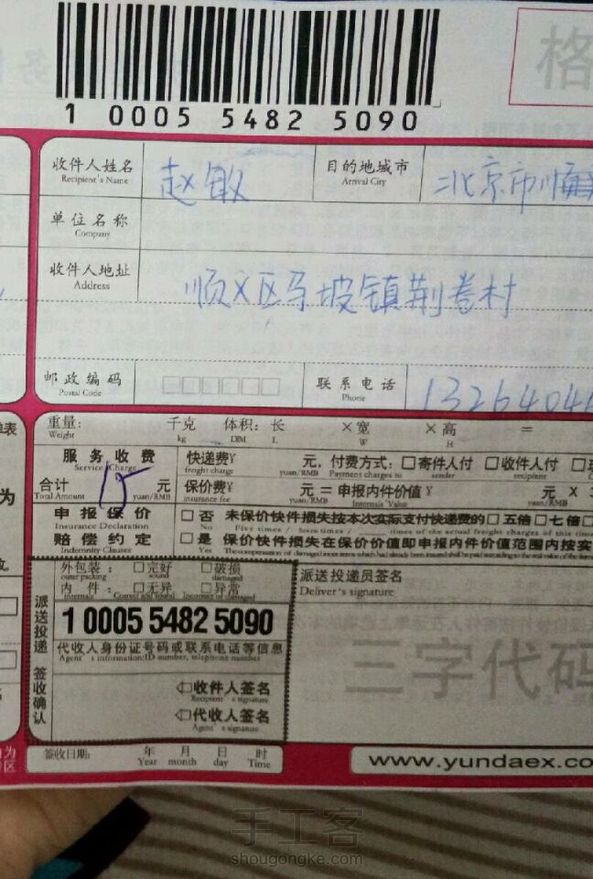 格
1 0005 5482 5090
收件人姓名 赵敏 目的地城市 北京市顺
Recipient's Name Arrival City
单位名称
Company
收件人地址 顺义区马坡镇荆卷村
Address
邮政编码 联系电话 1326404
Postal Code Phone
重量: 千克 体积: 长 ×宽 ×高 =
Weight kg DIM L W H
服务收费 快递费¥ 元, 付费方式: □寄件人付 □收件人付 □
Service Charge freight charge yuan/RMB Payment charges to
合计 15 元 保价费¥ 元 = 申报内件价值¥ 元 ×
Total Amount yuan/RMB insurance fee Internals Value yuan/RMB
申报保价 □否 未保价快件损失按本次实际支付快递费的□五倍□七倍□
Insurance Declaration No
赔偿约定 □是 保价快件损失在保价价值即申报内件价值范围内按实
Indemnity Clauses Yes
外包装: □完好 □破损
outer packing sound damaged
内件: □无异 □异常
派送投递员签名
Deliver's signature
派送投递 签收确认
1 0005 5482 5090
代收人身份证号码或联系电话等信息
Agent's information:ID number, telephone number
三字代码
收件人签名
Recipient's signature
代收人签名
Agent's signature
签收日期: 年 月 日 时
Year month day Time
www.yundaex.co
手工客
shougongke.com